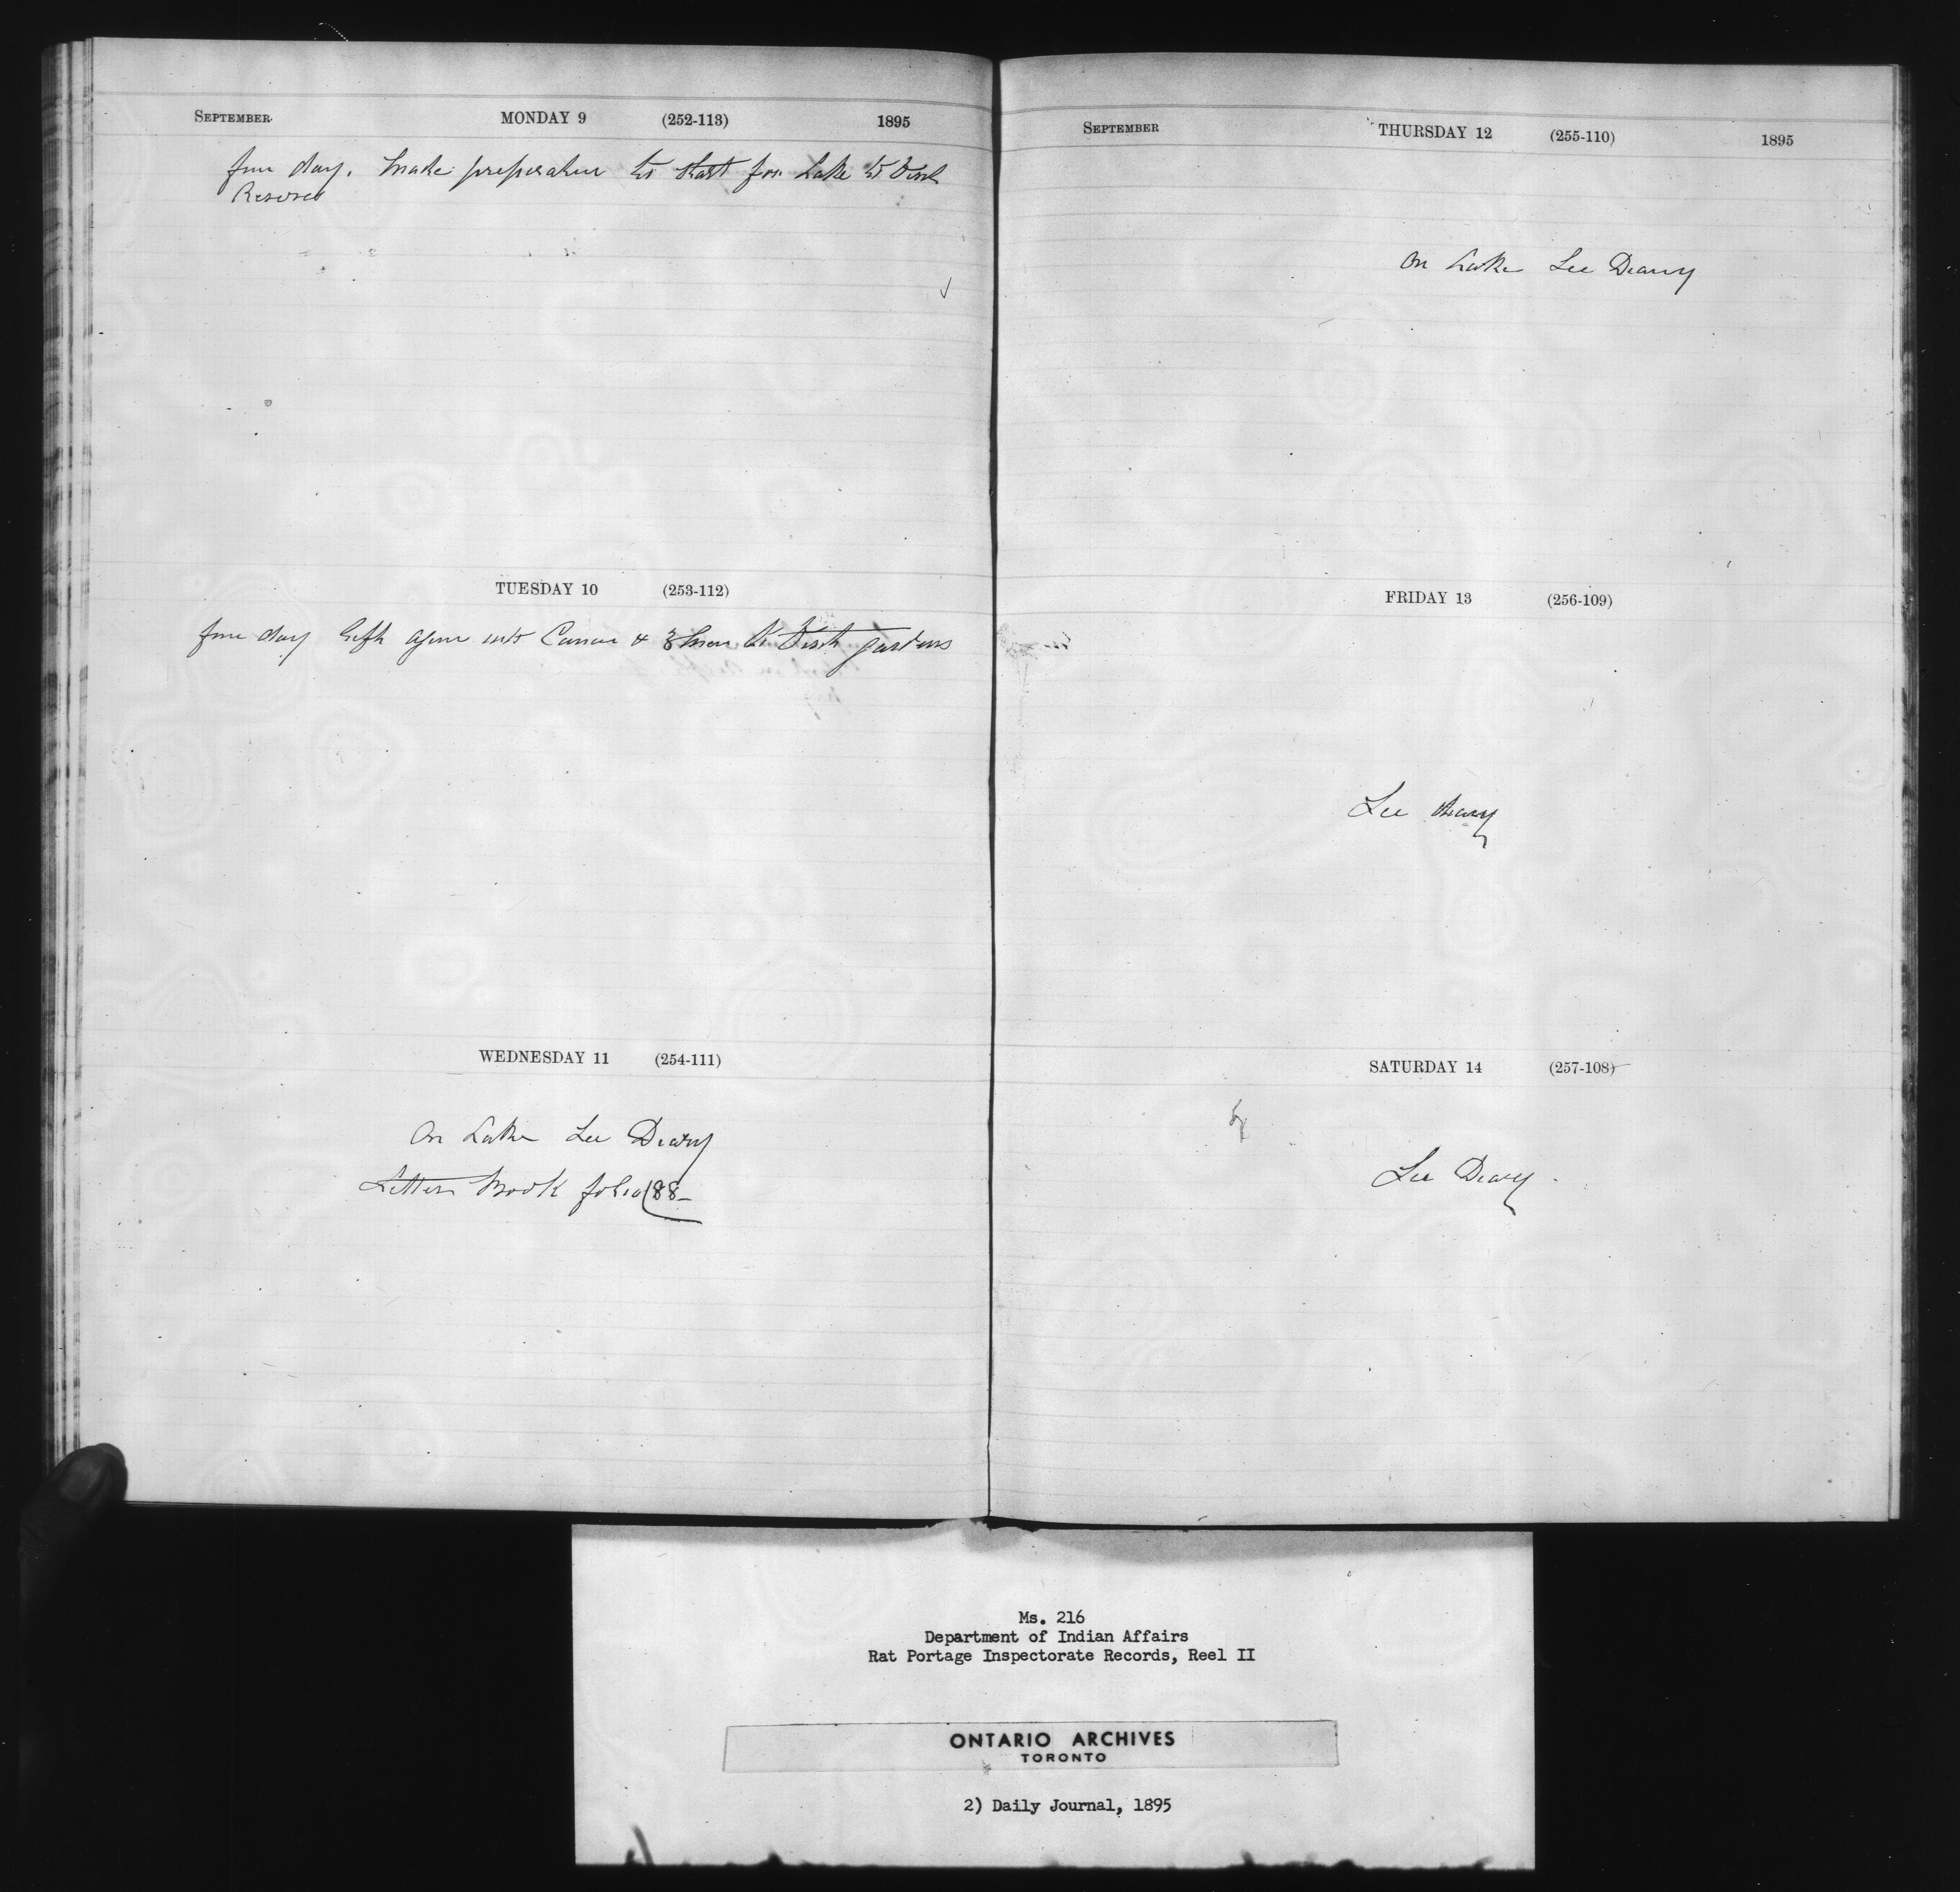 SEPTEMBER MONDAY 9 (252-113) 1895
fine day. Make preparation to start for Lake to Visit
Reserves
TUESDAY 10 (253-112)
fine day left again with Canoe & 3 men to Visit gardens
WEDNESDAY 11 (254-111)
On Lake See Diary
Letter Book folio 188-
SEPTEMBER THURSDAY 12 (255-110) 1895
On Lake See Diary
FRIDAY 13 (256-109)
See diary
SATURDAY 14 (257-108)
See Diary.
Ms. 216
Department of Indian Affairs
Rat Portage Inspectorate Records, Reel II
ONTARIO ARCHIVES
TORONTO
2) Daily Journal, 1895